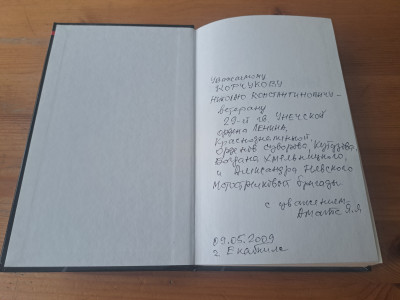 Уважаемому
КОРЧУКОВУ
Николаю Константиновичу -
ветерану
22-й гв. Унечской
ордена Ленина,
Краснознаменной,
орденов Суворова, Кутузова,
Богдана Хмельницкого,
и Александра Невского
Мотострелковой бригады
с уважением
Я.Я.
09.05.2009
г. Екабпилс